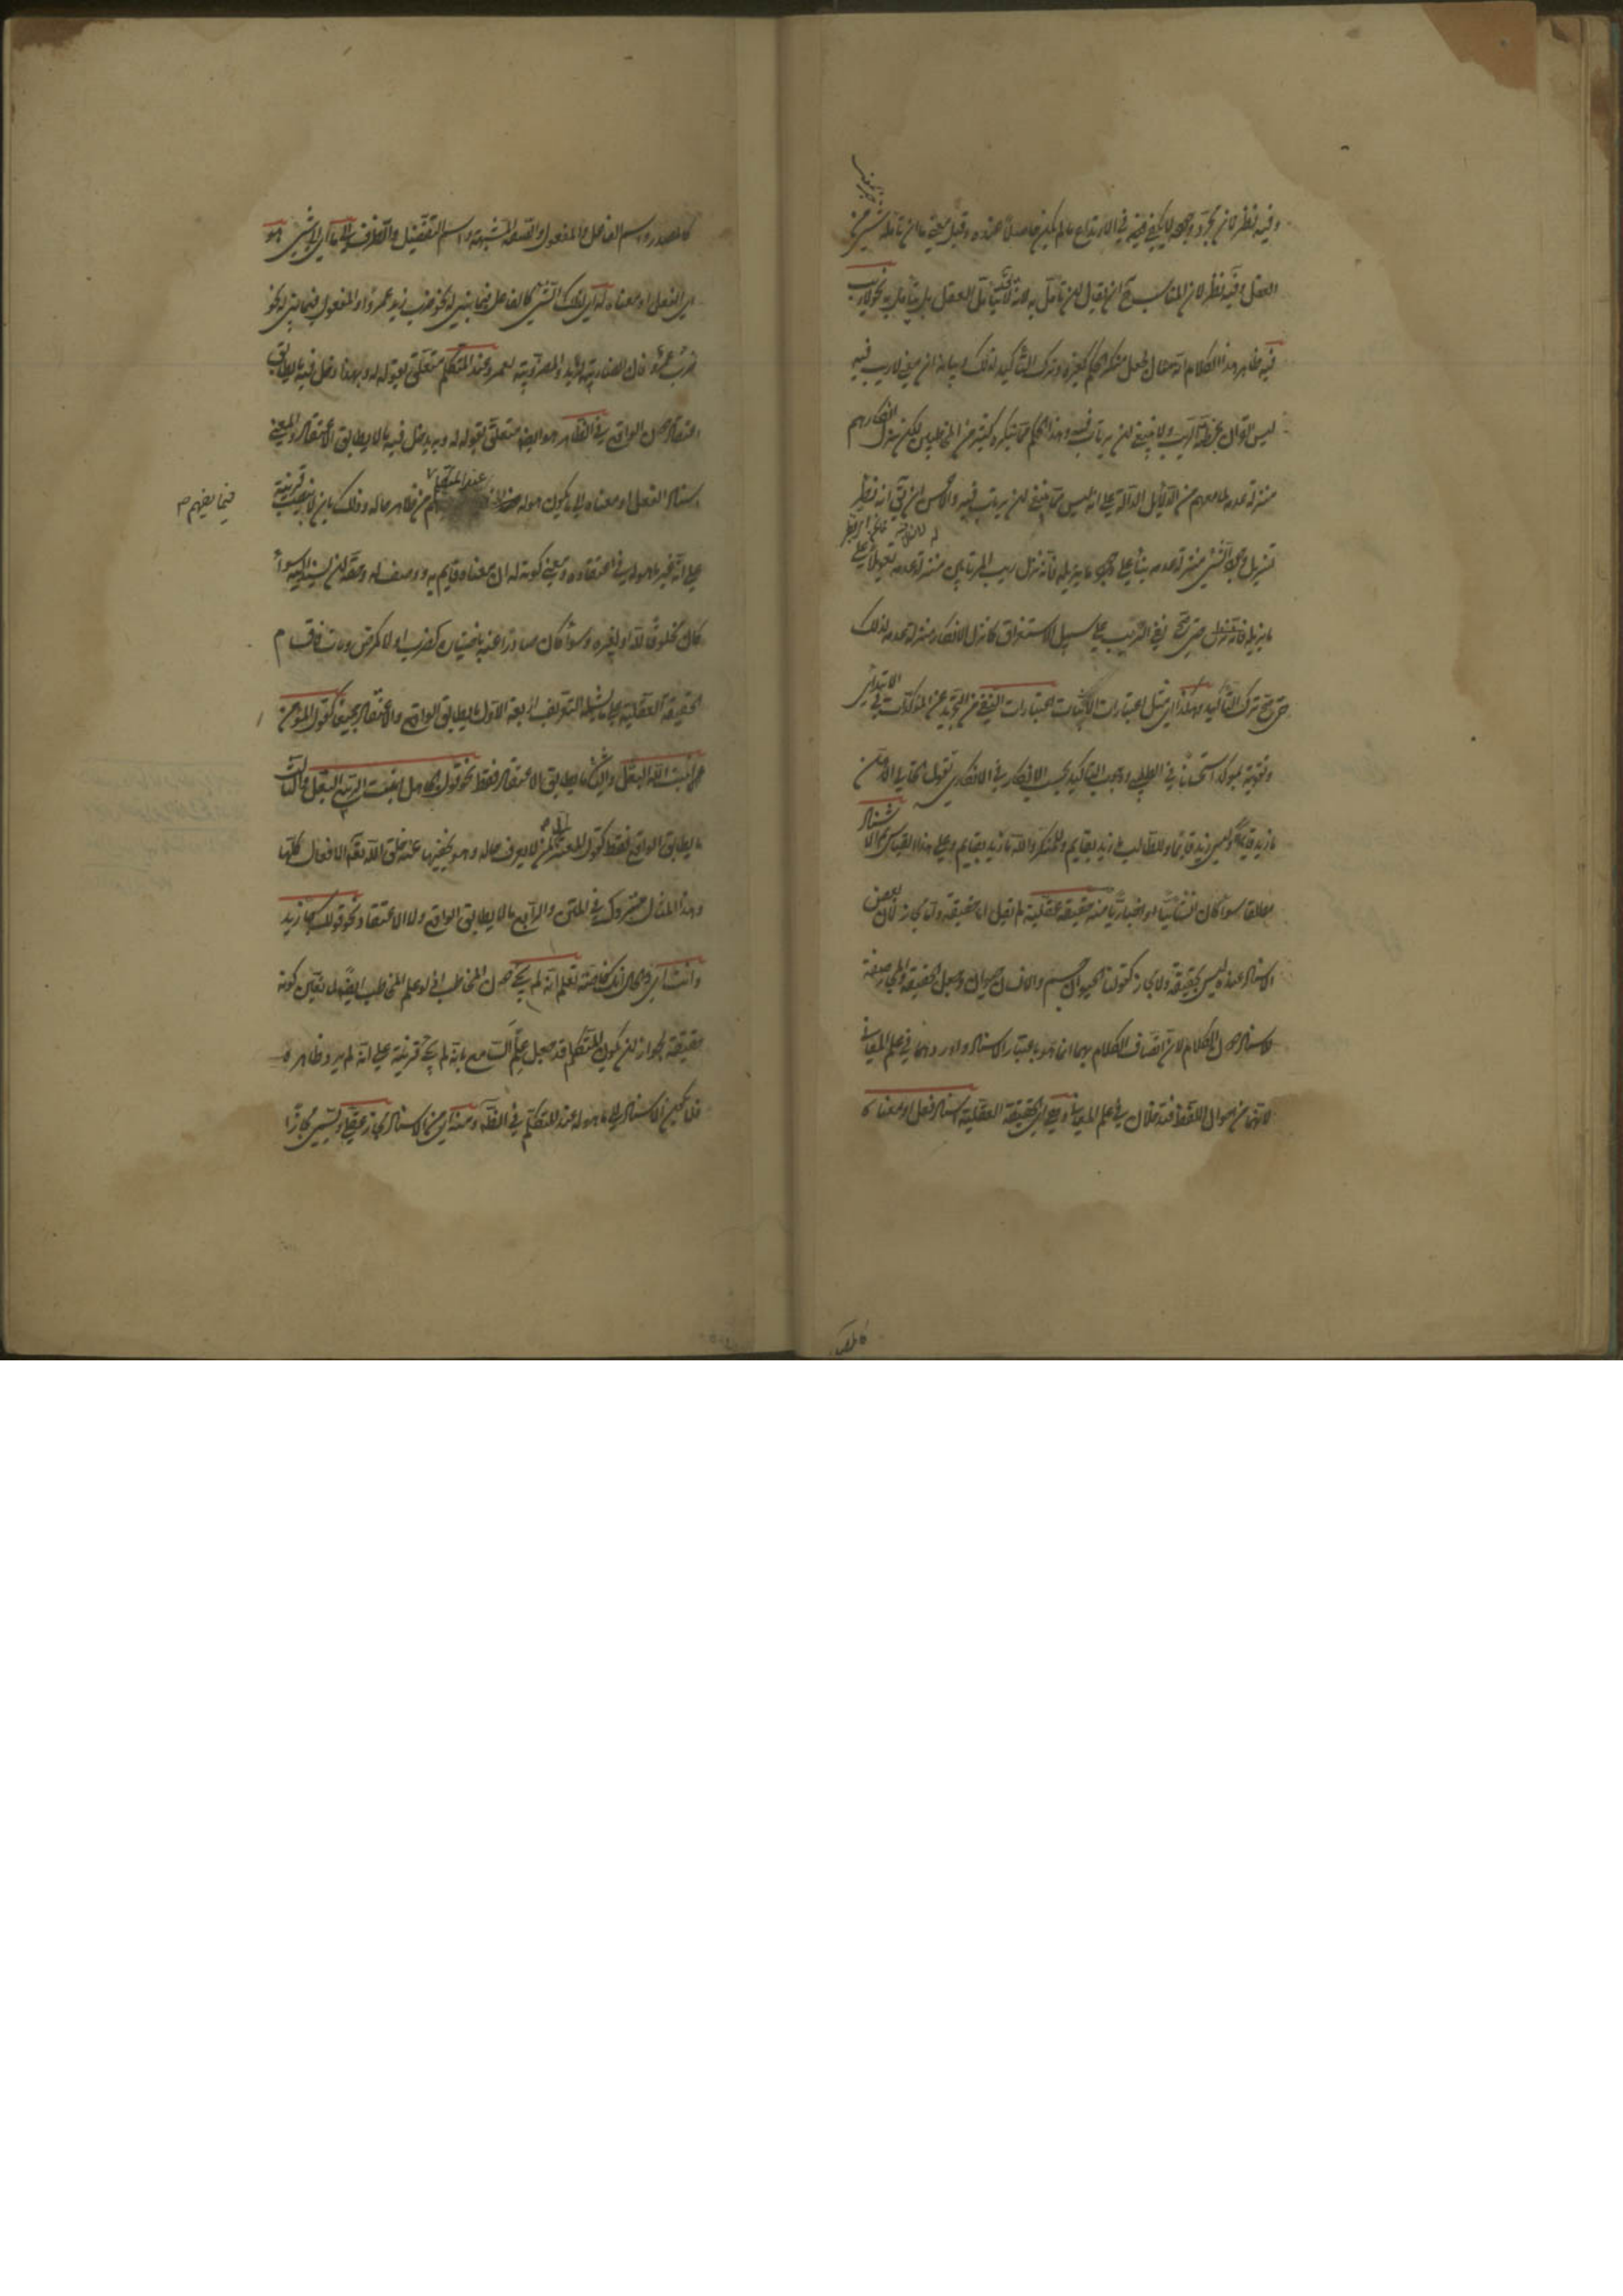 وفيه نظر لان مجرد وجوده لا يكفي في الارتداع ما لم يكن حاصلا عنده وقيل معنى ما ان تأمله شيء من
العقل وفيه نظر لان المناسب ح ان يقال ان تأمل به لانه لا يتأمل العقل بل يتأمل به نحو لا ريب
فيه ظاهر هذا الكلام انه مثال لجعل منكر الحكم كغيره وترك التأكيد لذلك وبيانه ان معنى لا ريب فيه
ليس القران بمظنة للريب ولا ينبغي ان يرتاب فيه وهذا الحكم مما ينكره كثير من المخاطبين لكن نزل انكارهم
منزلة عدمه لما معهم من الدلايل الدالة على انه ليس مما ينبغي ان يرتاب فيه والاحسن ان يق انه نظير
تنزيل وجود الشيء منزلة عدمه بناء على وجود ما يزيله فانه نزل ريب المرتابين منزلة عدمه تعويلا على
ما يزيله حتى صح نفي الريب على سبيل الاستغراق كما نزل الانكار منزلة عدمه لذلك
حتى صح ترك التأكيد وهكذا اي مثل اعتبارات الاثبات اعتبارات النفي من التجريد عن المؤكدات في الابتدائي
وتقويته بمؤكد استحسانا في الطلبي ووجوب التأكيد بحسب الانكار في الانكاري تقول لخالي الذهن
ما زيد قايما او ليس زيد قايما وللطالب ما زيد بقايم وللمنكر والله ما زيد بقايم وعلى هذا القياس ثم الاسناد
مطلقا سواء كان انشائيا او اخباريا منه حقيقة عقلية لم يقل اما حقيقة واما مجاز لان بعض
الاسناد عنده ليس بحقيقة ولا مجاز كقولنا الحيوان جسم والانسان حيوان وجعل الحقيقة والمجاز صفة
للاسناد دون الكلام لان اتصاف الكلام بهما انما هو باعتبار الاسناد واوردهما في علم المعاني
لانهما من احوال اللفظ فيدخلان في علم المعاني وهي اي الحقيقة العقلية اسناد الفعل او معناه
كالمصدر
كالمصدر واسم الفاعل والمفعول والصفة المشبهة واسم التفضيل والظرف الى ما اي الى شيء هو
اي الفعل او معناه له اي لذلك الشيء كالفاعل فيما بني له نحو ضرب زيد عمروا او المفعول فيما بني له نحو
ضرب عمرو فان الضاربية لزيد والمضروبية لعمرو عند المتكلم متعلق بقوله له وبهذا دخل فيه ما يطابق
الاعتقاد دون الواقع في الظاهر هو ايضا متعلق بقوله له وبه يدخل فيه ما لا يطابق الاعتقاد والمعنى
اسناد الفعل او معناه الى ما يكون هو له عند المتكلم من ظاهر حاله وذلك بان لا ينصب قرينة
فيما يفهم
على انه غير ما هو له في اعتقاده ومعنى كونه له ان معناه قايم به ووصف له وحقه ان يسند اليه سواء
كان مخلوقا لله او لغيره وسواء كان صادرا عنه باختياره كضرب او لا كمرض ومات فاقسام
الحقيقة العقلية على ما يشمله التعريف اربعة الاول ما يطابق الواقع والاعتقاد جميعا كقول المؤمن
انبت الله البقل والثاني ما يطابق الاعتقاد فقط نحو قول الجاهل انبت الربيع البقل والثالث
ما يطابق الواقع فقط كقول المعتزلي لمن لا يعرف حاله وهو يخفيها عنه خلق الله تعالى الافعال كلها
وهذا المثال متروك في المتن والرابع ما لا يطابق الواقع ولا الاعتقاد نحو قولك جاء زيد
وانت اي والحال انك خاصة تعلم انه لم يجئ دون المخاطب اذ لو علم المخاطب ايضا لما تعين كونه
حقيقة لجواز ان يكون المتكلم قد جعل علم السامع بانه لم يجئ قرينة على انه لم يرد ظاهره
فلا يكون الاسناد الى ما هو له عند المتكلم في الظاهر ومنه اي من الاسناد مجاز عقلي ويسمى مجازا